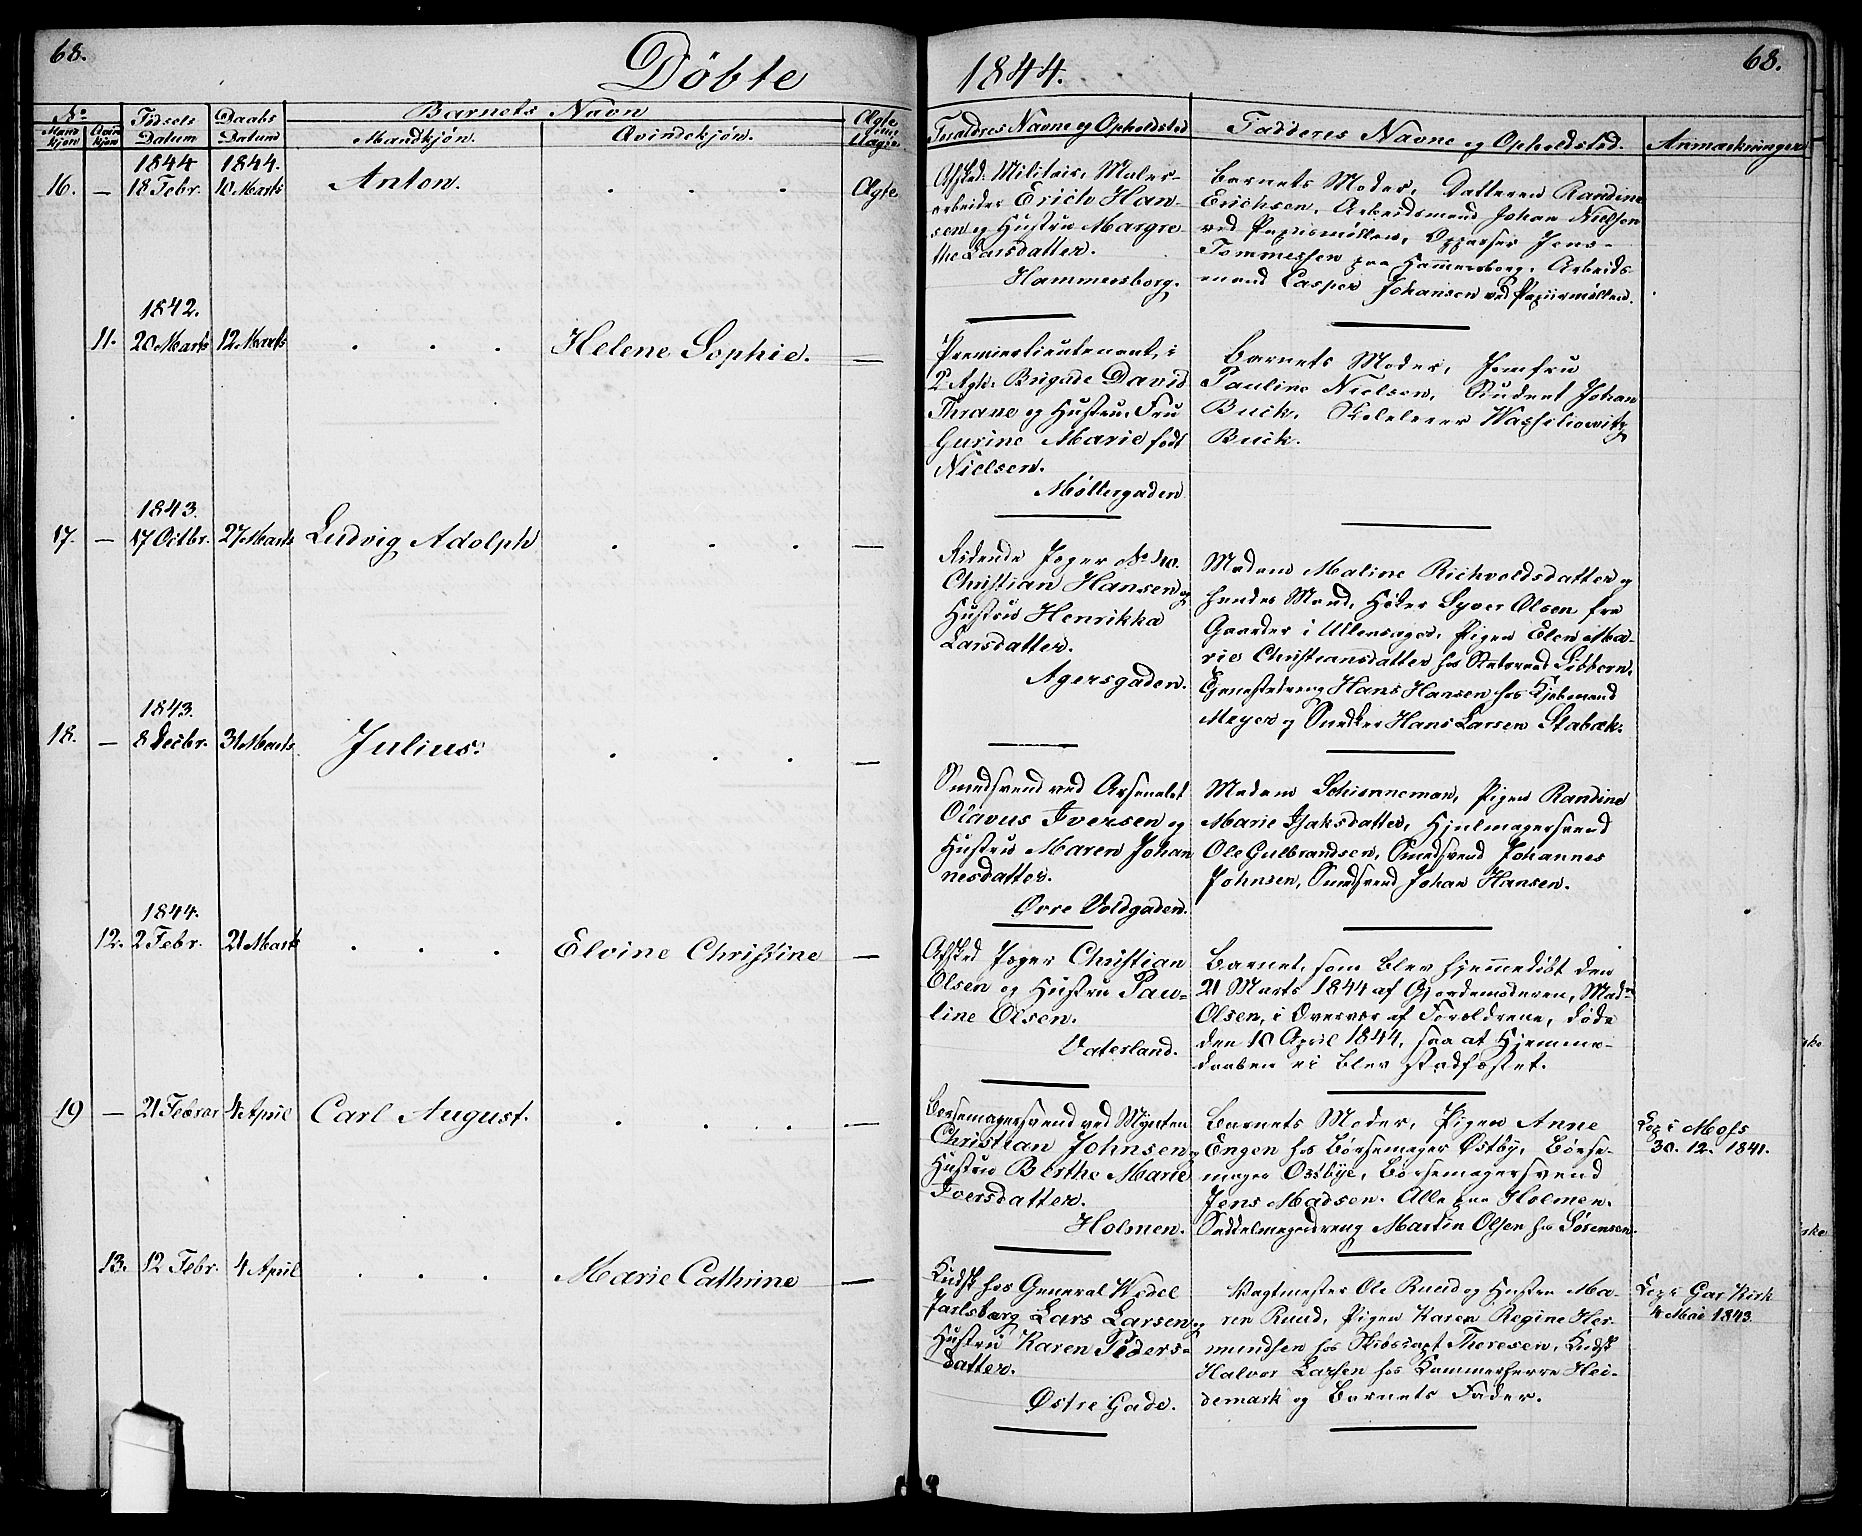 68.
Döbte
1844.
68.
No
Mand kjøn
Qvin kjøn
Födsels Datum
Daabs Datum
Barnets Navn
Mandkjön.
Qvindekjön.
Ægte
Uægte
Foraldres Navne og Opholdsted
Fadderes Navne og Opholdsted.
Anmærkninger
1844 1844.
16. — 18 Febr. 10 Marts Anton. Ægte
Afsked. Militair, Maler-
arbeider Erich Han-
sen og Hustru Margre
the Larsdatter.
Hammersborg.
Barnets Moder, Datteren Randine
Erichsen, Arbeidsmand Johan Nielsen
ved Papiirmöllen, Oppasser Jens
Tommessen paa Hammersborg. Arbeids-
mand Casper Johansen ved Papiirmöllen.
1842.
11. 20 Marts 12 Marts Helene Sophie. —
Premierlieutenant, i
2 Agh. Brigade David
Thrane og Hustru, Fru
Gurine Marie født
Nielsen.
Möllergaden
Barnets Moder, Jomfru
Pauline Nielsen, Student Johan
Buck, Skolelerer Wassiliowitz
Buck.
1843.
17. — 17 Octbr. 27 Marts Ludvig Adolph —
Ridende Jæger No 40.
Christian Hansen og
Hustru Henrikka
Larsdatter.
Agersgaden.
Madam Maline Richvoldsdatter og
hendes Mand, Høker Syver Olsen fra
Gaarder i Ullensager, Pigen Elen Ma-
rie Christiansdatter hos Statsraad Sibbern,
Tjenestedreng Hans Hansen hos Kjøbmand
Meyer og Snedker Hans Larsen Stabæk.
1843.
18. — 8 Decbr. 31 Marts Julius. —
Smedsvend ved Arsenalet
Olavus Iversen og
Hustru Maren Johan
nesdatter.
Øvre Voldgaden.
Madam Schienneman, Pigen Randine
Marie Isaksdatter, Hjulmagersvend
Ole Gulbrandsen, Smedsvend Johannes
Johnsen, Smedsvend Johan Hansen.
1844.
12. 2 Febr. 21 Marts Elvine Christine —
Afsked Jæger Christian
Olsen og Hustru Pau-
line Olsen.
Vaterland.
Barnet, som blev hjemmedöbt den
21 Marts 1844 af Gjordemoderen, Madm
Olsen, i Overvær af Forældrene, døde
den 10 April 1844, saa at Hjemme-
daaben ei blev stadfæstet.
19 — 21 Februar 4 April Carl August. —
Børsemagersvend ved Mynten
Christian Johnsen og
Hustru Berthe Marie
Iversdatter.
Holmen.
Barnets Moder, Pigen Anne
Engen hos Børsemager Østby, Børse-
mager Østbye, Børsemagersvend
Jens Madsen. Alle paa Holmen.
Sadelmagerdreng Martin Olsen hos Sörensen.
Cop. i Moss
30. 12. 1841.
13. 12 Febr. 4 April Marie Cathrine —
Kudsk hos General Wedel
Jarlsberg Lars Larsen og
Hustru Karen Peders-
datter.
Østre Gade.
Vagtmester Ole Ruud og Hustru Ma-
ren Ruud, Pigen Karen Regine Her-
mundsen hos Skibscapt Theresen, Kudsk
Halvor Larsen hos Kammerherre Hei-
demark og Barnets Fader.
Cop. i Gar Kirk
4 Mai 1843